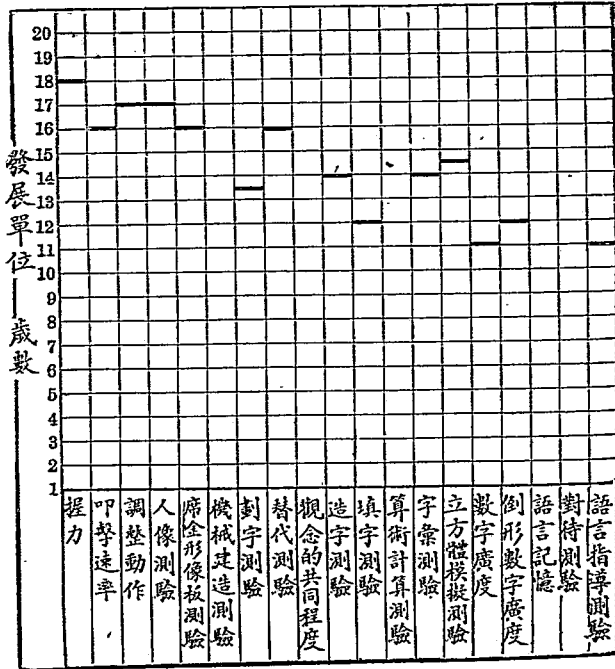 20
19
18
17
16
15
14
13
12
11
10
9
8
7
6
5
4
3
2
1
發展單位
歲數
握力
叩擊速率
調整動作
人像測驗
席佺形像板測驗
機械建造測驗
劃字測驗
替代測驗
觀念的共同程度
造字測驗
填字測驗
算術計算測驗
字彙測驗
立方體模擬測驗
數字廣度
倒形數字廣度
語言記憶
對待測驗
語言指導測驗